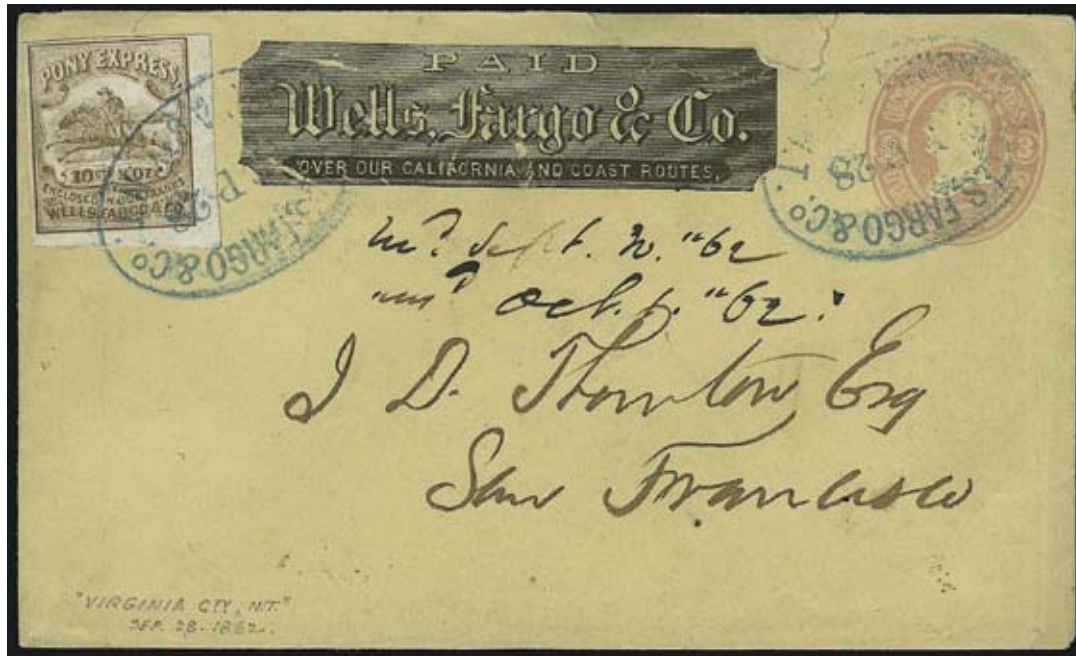 PONY EXPRESS
10 Cts ½ Oz
ENCLOSED IN OUR FRANKS
WELLS, FARGO & CO.
PAID
Wells, Fargo & Co.
OVER OUR CALIFORNIA AND COAST ROUTES.
S, FARGO & Co
S. FARGO & Co.
28
Sept. "62
Oct. 1. "62.
J D. Thornton, Esq
San Francisco
"VIRGINIA CTY, N.T."
SEP. 28. 1862.